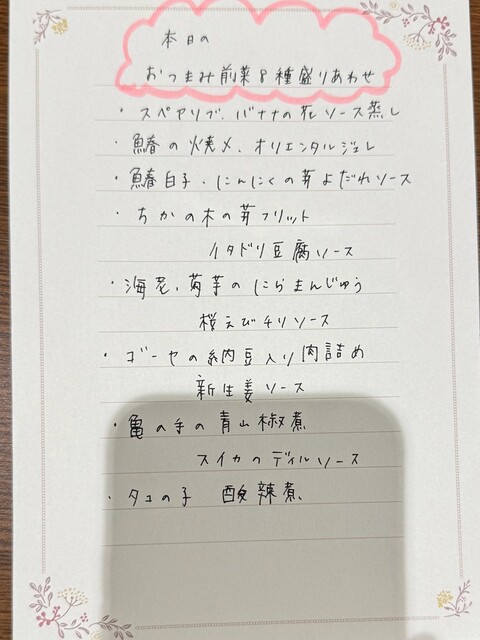 本日の
おつまみ前菜8種盛りあわせ
・スペアリブ、バナナの花ソース蒸し
・鰆の焼〆、オリエンタルジェレ
・鰆白子、にんにくの芽よだれソース
・たらの木の芽フリット
イタドリ豆腐ソース
・海老、菊芋のにらまんじゅう
桜えびチリソース
・ゴーヤの納豆入り肉詰め
新生姜ソース
・亀の手の青山椒煮
スイカのディルソース
・タコの子 酸辣煮、